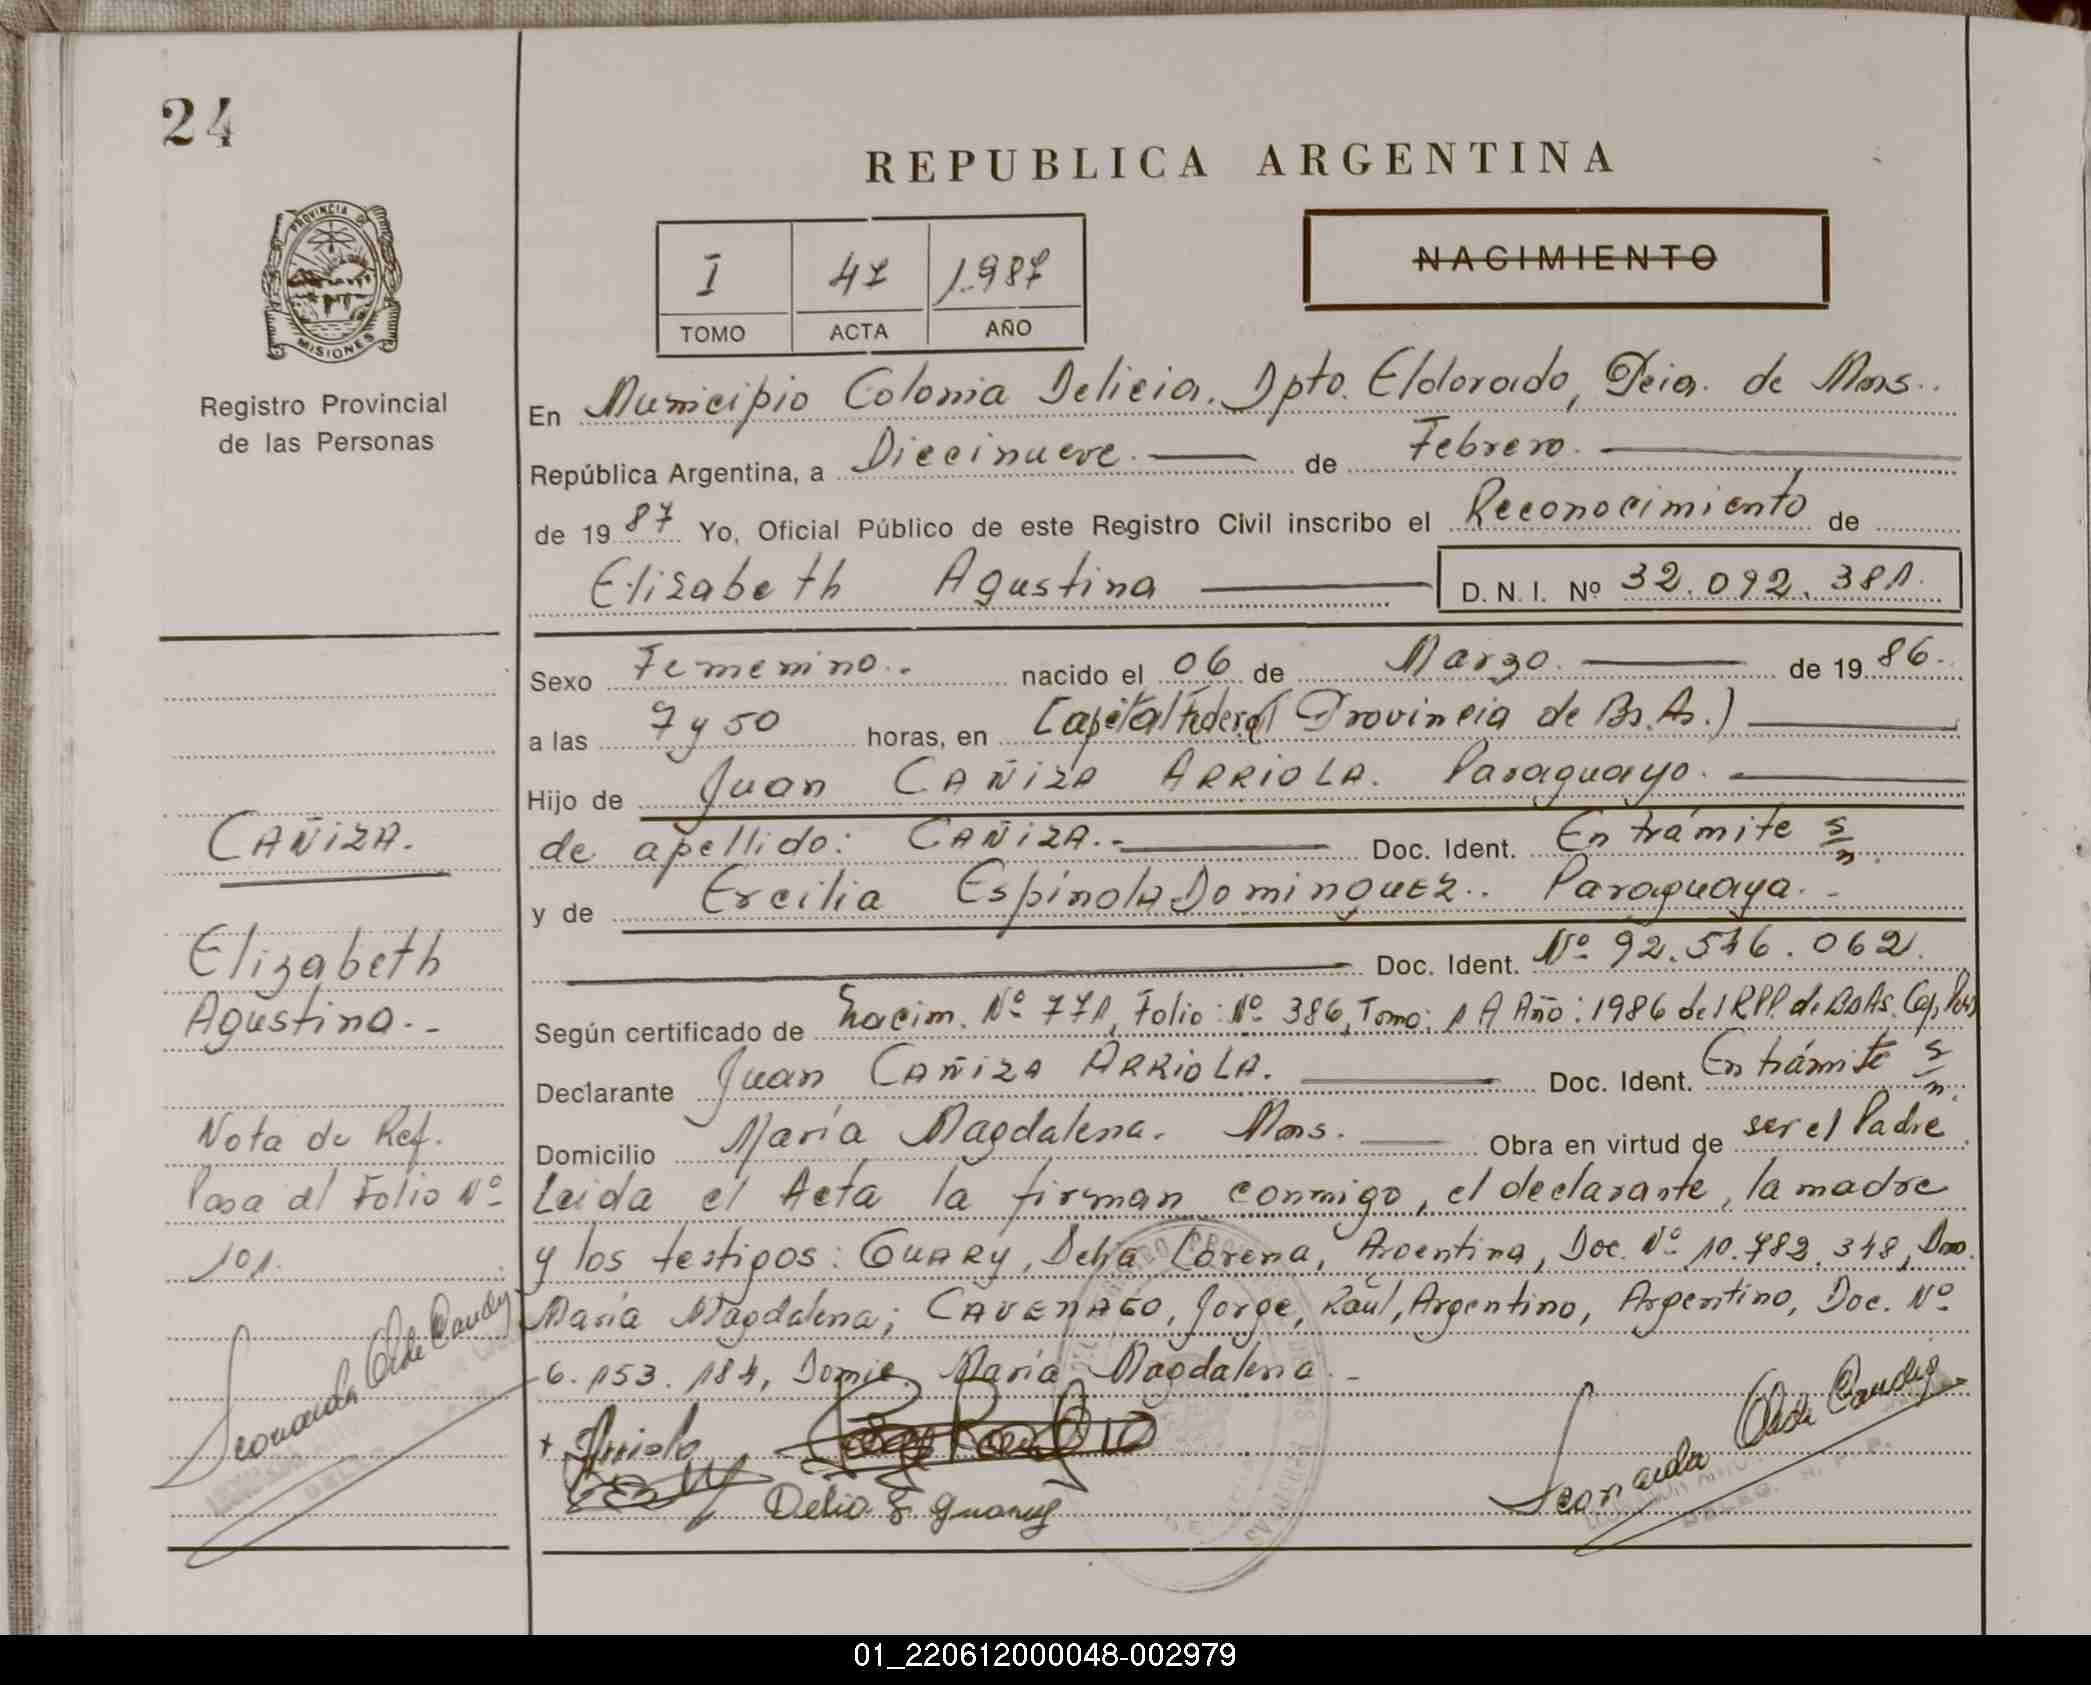 24
REPUBLICA ARGENTINA
PROVINCIA DE
MISIONES
Registro Provincial
de las Personas
I 47 1.987
TOMO ACTA AÑO
NACIMIENTO
En Municipio Colonia Delicia. Dpto. Eldorado, Pcia. de Mns..
República Argentina, a Diecinueve. de Febrero.
de 1987 Yo, Oficial Público de este Registro Civil inscribo el Reconocimiento de
Elizabeth Agustina D. N. I. Nº 32.092.381.
Sexo Femenino.. nacido el 06 de Marzo. de 1986.
a las 7 y 50 horas, en Capital Federal (Provincia de Bs. As.)
Hijo de Juan CAÑIZA ARRIOLA. Paraguayo.
de apellido: CAÑIZA.- Doc. Ident. En trámite s/n.
y de Ercilia Espínola DominguEZ.. Paraguaya.-
Doc. Ident. Nº 92.546.062.
Según certificado de Nacim. Nº 771, Folio: Nº 386, Tomo: 1 A Año: 1986 del RPP. de Bs As. Cap.
Declarante Juan CAÑIZA ARRIOLA. Doc. Ident. En trámite s/n.
Domicilio María Magdalena. Mns. Obra en virtud de ser el Padre.
Leida el Acta la firman conmigo, el declarante, la madre
y los testigos: GUARY, Delia Lorena, Argentina, Doc. Nº 10.782.348, Dom.
María Magdalena; CAVENAGO, Jorge, Raúl, Argentino, Argentino, Doc. Nº
6.153.184, Domic. María Magdalena.-
CAÑIZA.
Elizabeth
Agustina.-
Nota de Ref.
Pasa al Folio Nº
101.
Arriola
Delia L Guary
01_220612000048-002979